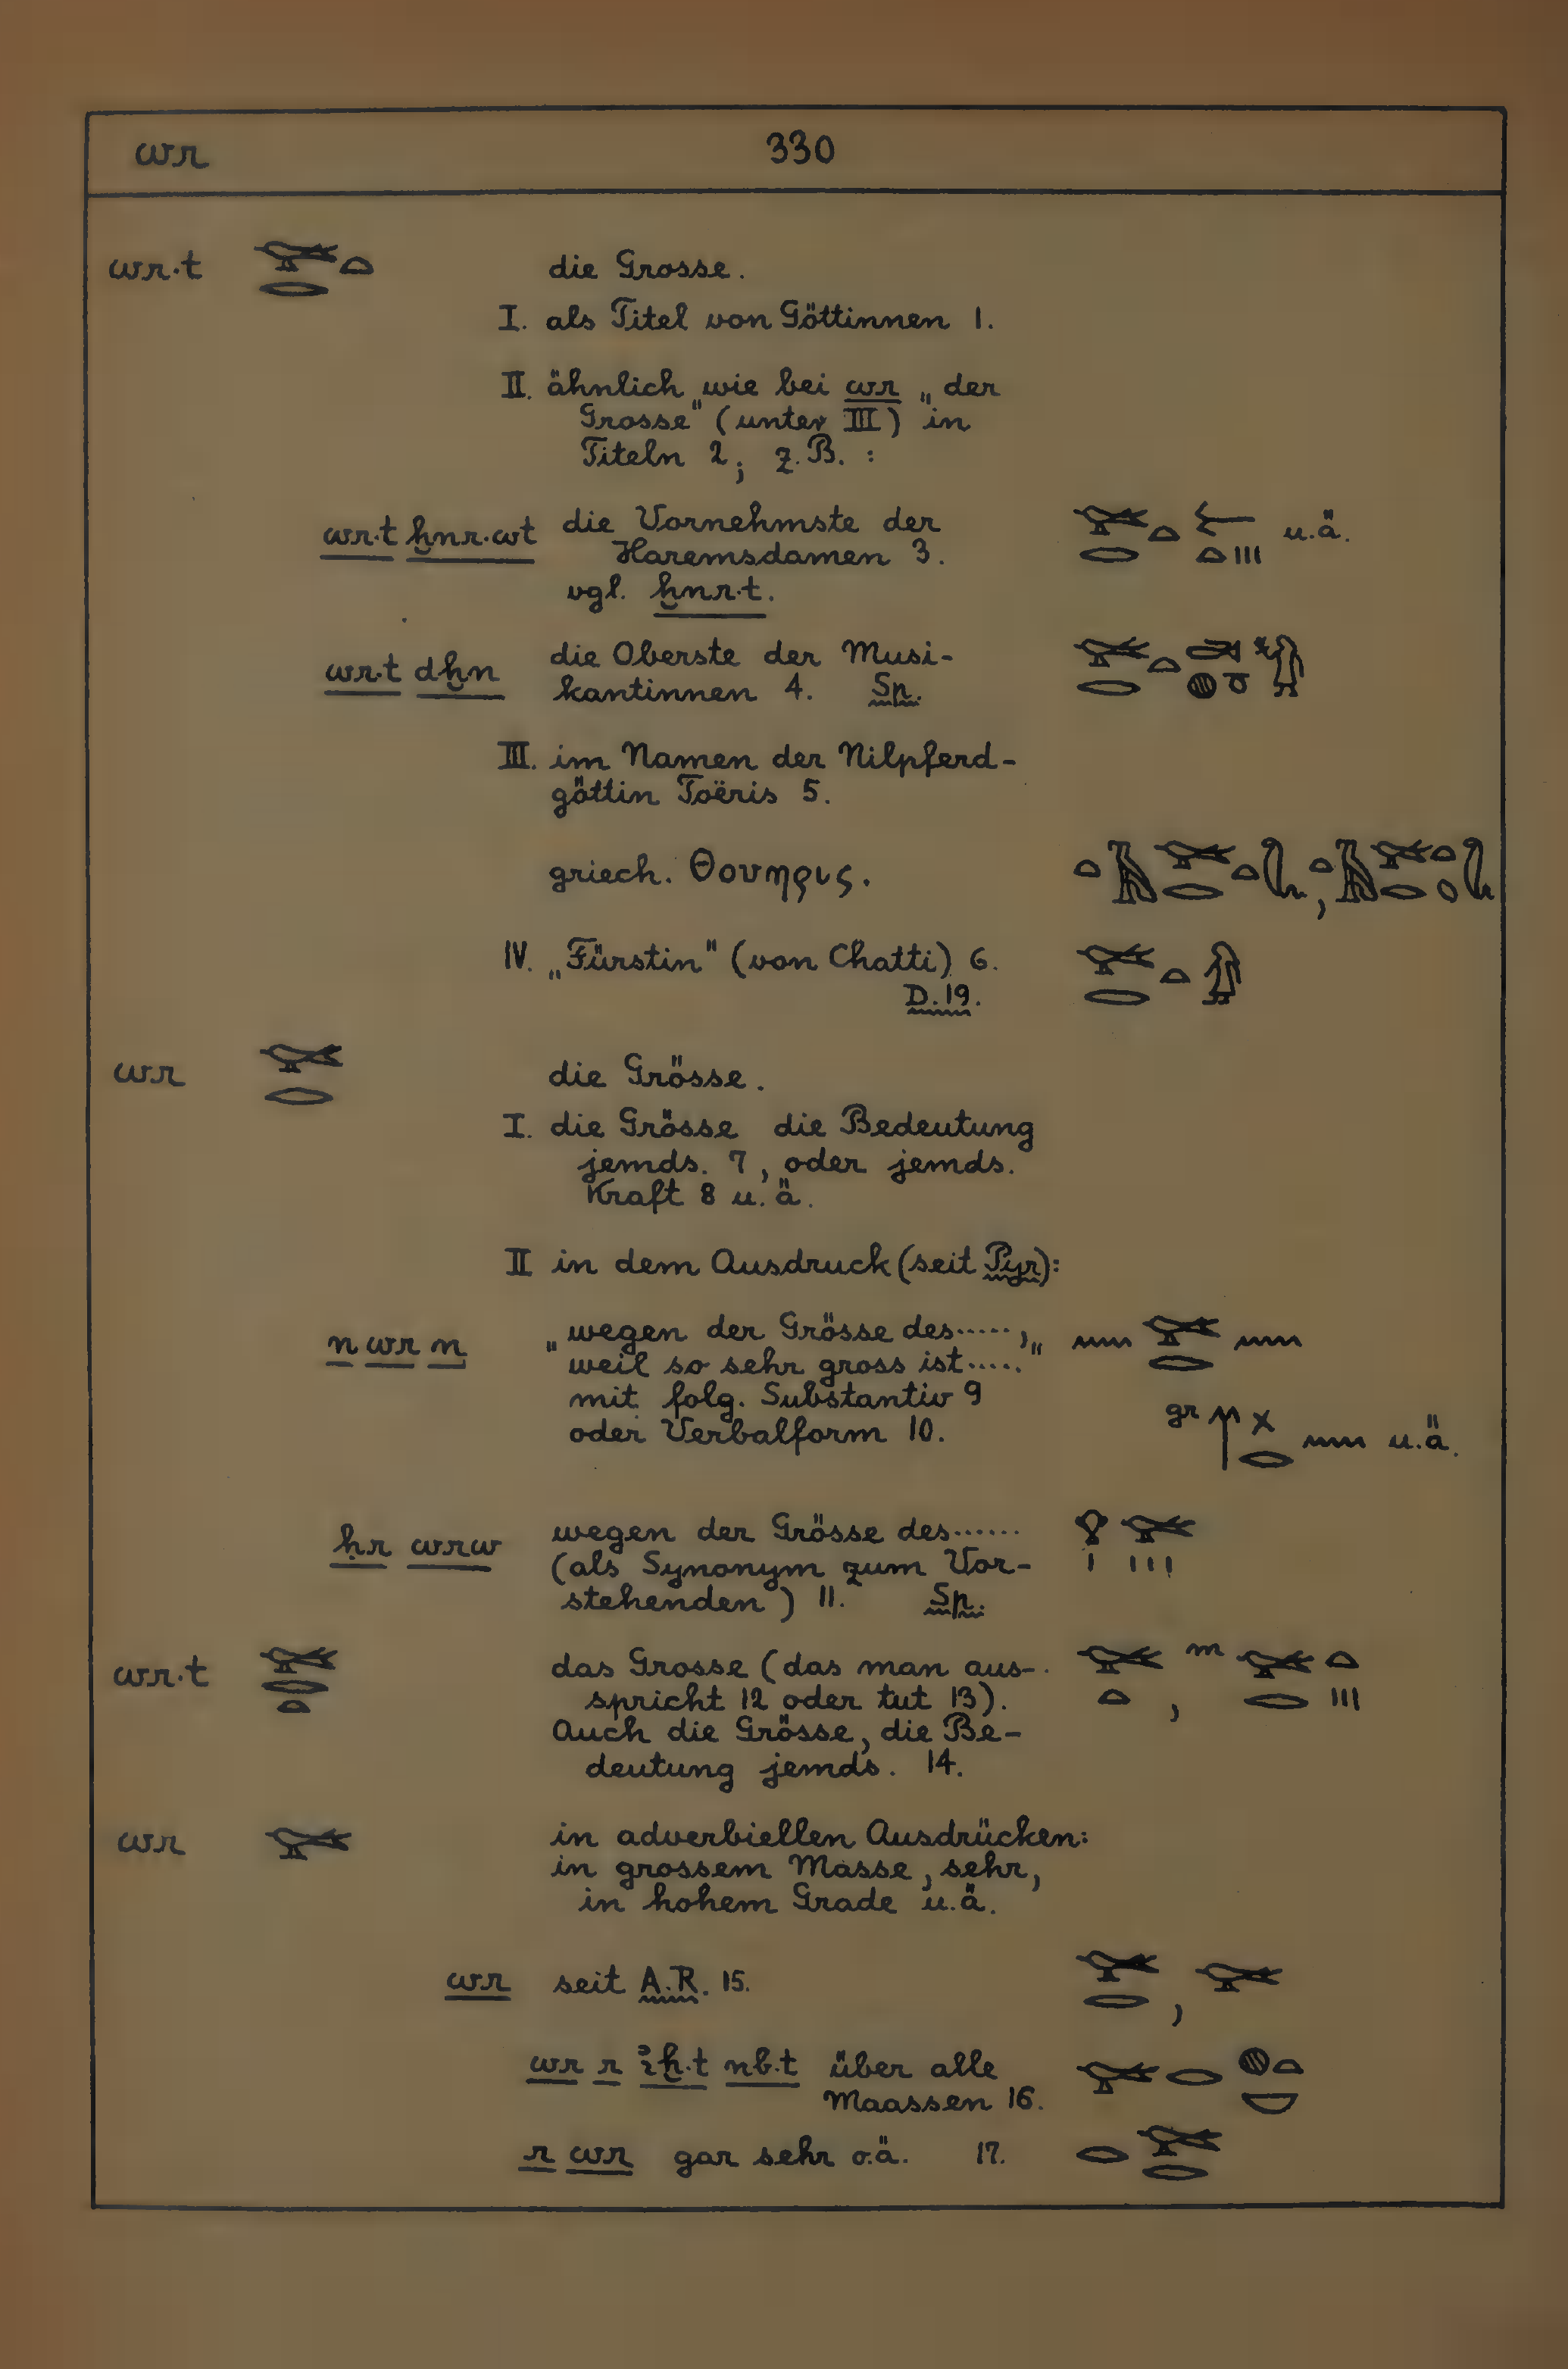 wr 330
wr·t 𓅨𓂋𓏏 die Grosse.
I. als Titel von Göttinnen 1.
II. ähnlich wie bei wr „der
Grosse" (unter III) in
Titeln 2; z.B. :
wr·t ḫnr·wt die Vornehmste der u.ä.
Haremsdamen 3.
vgl. ḫnr·t.
wr·t dḫn die Oberste der Musi-
kantinnen 4. Sp.
III. im Namen der Nilpferd-
göttin Toëris 5.
griech. Θουηρις.
IV. „Fürstin" (von Chatti) 6. 𓅨𓂋𓏏
D.19.
wr 𓅨𓂋 die Grösse.
I. die Grösse die Bedeutung
jemds. 7, oder jemds.
Kraft 8 u.ä.
II in dem Ausdruck (seit Pyr):
n wr n „wegen der Grösse des.....,„ 𓈖𓅨𓂋𓈖
weil so sehr gross ist....."
mit folg. Substantiv 9
oder Verbalform 10. gr u.ä.
ḥr wrw wegen der Grösse des...... 𓁷𓏤𓅨𓏥
(als Synonym zum Vor-
stehenden) 11. Sp.
wr·t 𓅨𓂋𓏏 das Grosse (das man aus- 𓅨𓏏, m 𓅨𓂋𓏏𓏥
spricht 12 oder tut 13).
Auch die Grösse, die Be-
deutung jemds. 14.
wr 𓅨 in adverbiellen Ausdrücken:
in grossem Masse, sehr,
in hohem Grade u.ä.
wr seit A.R. 15. 𓅨𓂋, 𓅨
wr r iḫ·t nb·t über alle 𓅨𓂋𓐍𓏏𓎟
Maassen 16.
r wr gar sehr o.ä. 17. 𓂋𓅨𓂋